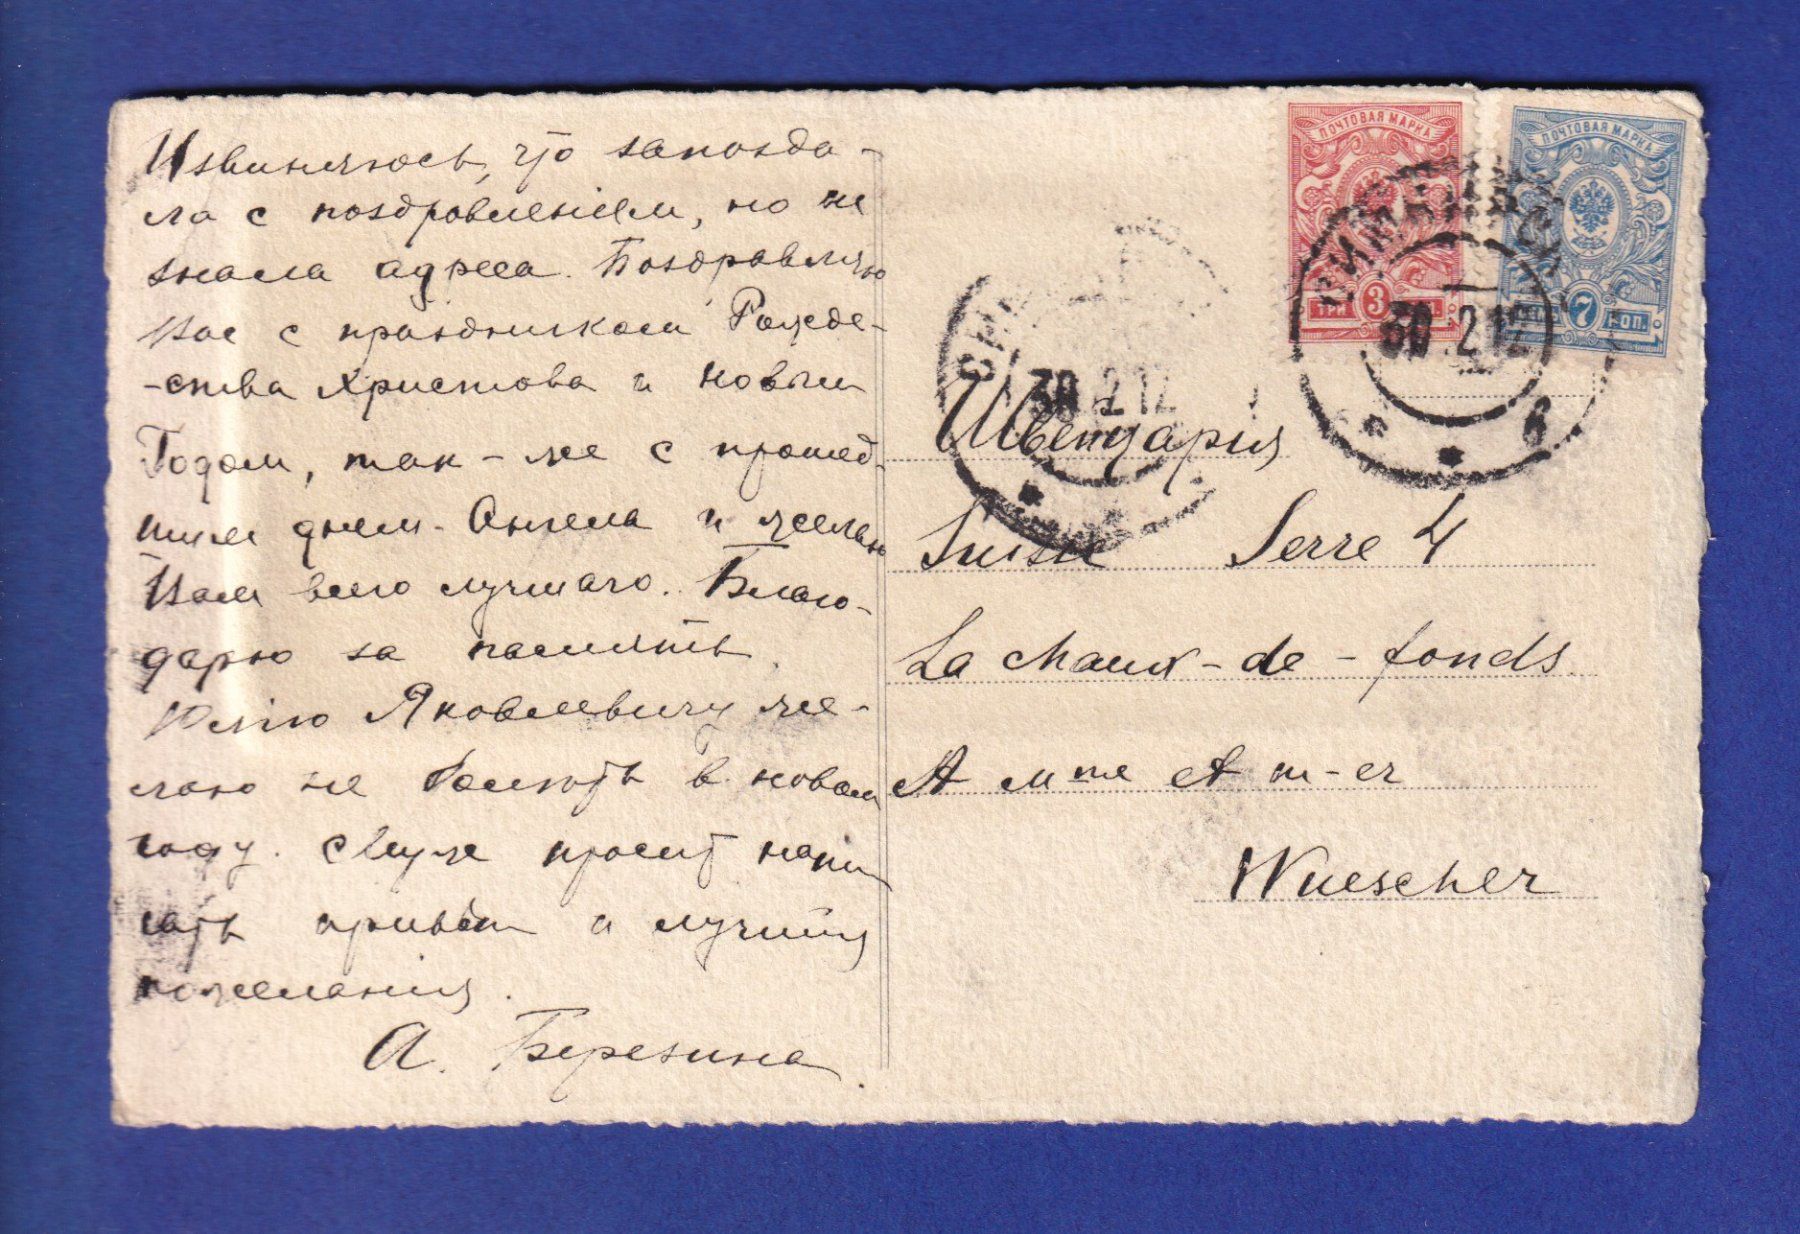 Извиняюсь, что запозда-
ла с поздравленіем, но не
знала адреса. Поздравляю
Вас с праздником Рожде-
-ства Христова и новым
Годом, так-же с прошед-
шим днем-Ангела и желаю
Вам всего лучшаго. Благо-
дарю за память.
Юлію Яковлевичу же-
лаю не болѣть в новом
году. Муж просит напи
сать привѣт и лучшія
пожеланія.
А. Березина.
ПОЧТОВАЯ МАРКА
ТРИ 3
ПОЧТОВАЯ МАРКА
7 КОП.
30 12 12
30 12 12
Швейцария
Suisse Serre 4
La chaux-de-fonds.
A Mme et m-er
Wuescher